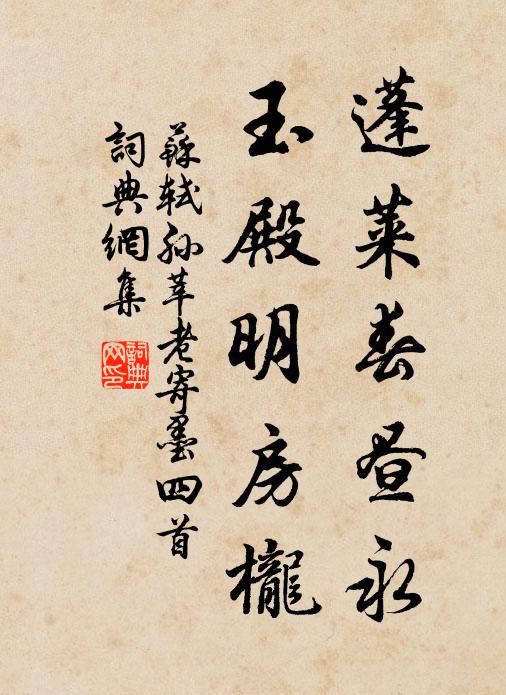 蓬莱春昼永
玉殿明房櫳
蘇軾孫莘老寄墨四首
詞典網集
詞典網印